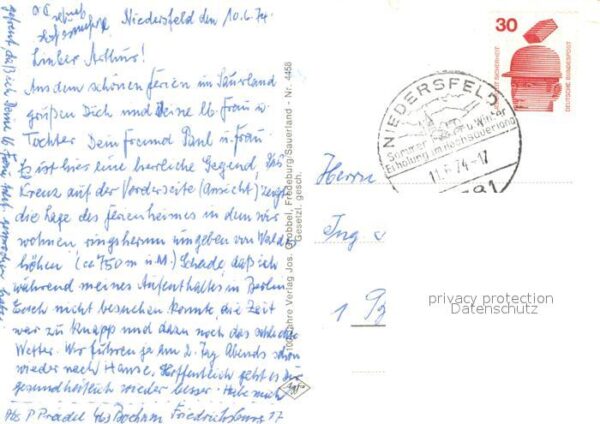 Niedersfeld den 10.6.74.
Lieber Arthur!
Aus dem schönen Ferien im Sauerland
grüßen Dich und Deine lb. Frau u.
Tochter Dein Freund Paul u. Frau
Es ist hier eine herrliche Gegend, Das
Kreuz auf der Vorderseite (Ansicht) zeigt
die Lage des Ferienheimes in dem wir
wohnen, ringsherum umgeben von Wald
höhen (ca 750 m ü. M.) Schade, daß ich
während meines Aufenthaltes in Berlin
Euch nicht besuchen konnte, die Zeit
war zu knapp und dazu noch das schlechte
Wetter. Wir fuhren ja am 2. Tag Abends schon
wieder nach Hause. Hoffentlich geht es Dir
gesundheitlich wieder besser. Habe mich
gefreut, daß ich Deine lb. Frau
Abs P Pradel 463 Bochum Friedrichsburg 77
100 Jahre Verlag Jos. Grobbel, Fredeburg/Sauerland - Nr. 4458
Gesetzl. gesch.
30
DEUTSCHE BUNDESPOST
NIEDERSFELD
Sommer u. Winter
Erholung im Hochsauerland
11.6.74-17
Herrn
Ing
privacy protection
Datenschutz